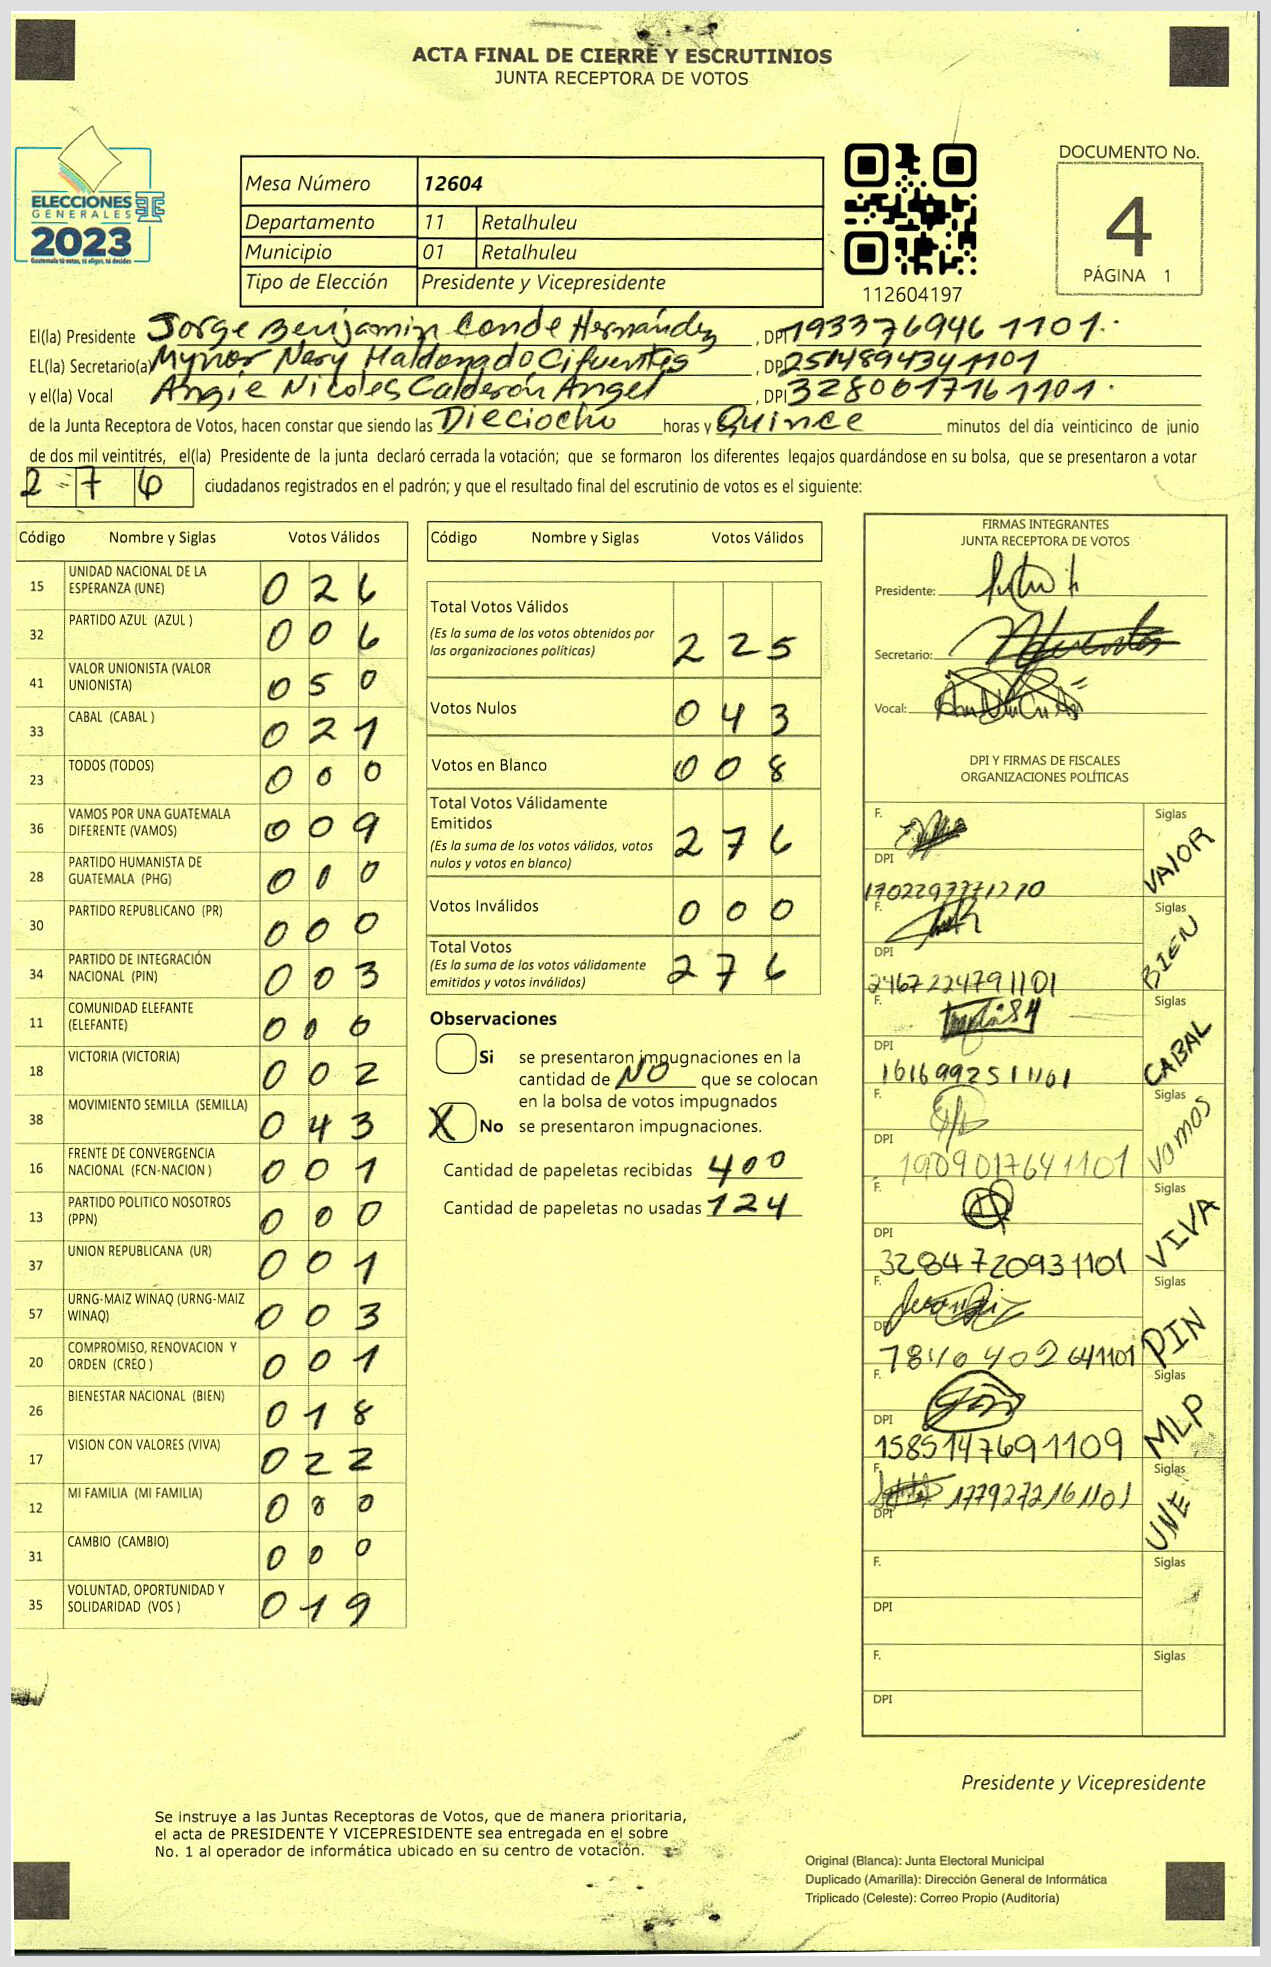 ACTA FINAL DE CIERRE Y ESCRUTINIOS
JUNTA RECEPTORA DE VOTOS
ELECCIONES
GENERALES
2023
Guatemala tú votas, tú eliges, tú decides
Mesa Número 12604
Departamento 11 Retalhuleu
Municipio 01 Retalhuleu
Tipo de Elección Presidente y Vicepresidente
112604197
DOCUMENTO No.
4
PÁGINA 1
El(la) Presidente Jorge Benjamin Conde Hernández, DPI 1933769461101
EL(la) Secretario(a) Mynor Nery Maldonado Cifuentes, DPI 2514894341101
y el(la) Vocal Angie Nicoles Calderón Angel, DPI 3280017161101
de la Junta Receptora de Votos, hacen constar que siendo las Dieciocho horas y Quince minutos del día veinticinco de junio
de dos mil veintitrés, el(la) Presidente de la junta declaró cerrada la votación; que se formaron los diferentes legajos quardándose en su bolsa, que se presentaron a votar
2 7 6 ciudadanos registrados en el padrón; y que el resultado final del escrutinio de votos es el siguiente:
Código Nombre y Siglas Votos Válidos
15 UNIDAD NACIONAL DE LA ESPERANZA (UNE) 0 2 6
32 PARTIDO AZUL (AZUL ) 0 0 6
41 VALOR UNIONISTA (VALOR UNIONISTA) 0 5 0
33 CABAL (CABAL ) 0 2 1
23 TODOS (TODOS) 0 0 0
36 VAMOS POR UNA GUATEMALA DIFERENTE (VAMOS) 0 0 9
28 PARTIDO HUMANISTA DE GUATEMALA (PHG) 0 0 0
30 PARTIDO REPUBLICANO (PR) 0 0 0
34 PARTIDO DE INTEGRACIÓN NACIONAL (PIN) 0 0 3
11 COMUNIDAD ELEFANTE (ELEFANTE) 0 0 0
18 VICTORIA (VICTORIA) 0 0 2
38 MOVIMIENTO SEMILLA (SEMILLA) 0 4 3
16 FRENTE DE CONVERGENCIA NACIONAL (FCN-NACION ) 0 0 1
13 PARTIDO POLITICO NOSOTROS (PPN) 0 0 0
37 UNION REPUBLICANA (UR) 0 0 1
57 URNG-MAIZ WINAQ (URNG-MAIZ WINAQ) 0 0 3
20 COMPROMISO, RENOVACION Y ORDEN (CREO ) 0 0 1
26 BIENESTAR NACIONAL (BIEN) 0 1 8
17 VISION CON VALORES (VIVA) 0 2 2
12 MI FAMILIA (MI FAMILIA) 0 0 0
31 CAMBIO (CAMBIO) 0 0 0
35 VOLUNTAD, OPORTUNIDAD Y SOLIDARIDAD (VOS ) 0 1 9
Código Nombre y Siglas Votos Válidos
Total Votos Válidos
(Es la suma de los votos obtenidos por
las organizaciones políticas) 2 2 5
Votos Nulos 0 4 3
Votos en Blanco 0 0 8
Total Votos Válidamente
Emitidos
(Es la suma de los votos válidos, votos
nulos y votos en blanco) 2 7 6
Votos Inválidos 0 0 0
Total Votos
(Es la suma de los votos válidamente
emitidos y votos inválidos) 2 7 6
Observaciones
Si se presentaron impugnaciones en la
cantidad de NO que se colocan
en la bolsa de votos impugnados
X No se presentaron impugnaciones.
Cantidad de papeletas recibidas 400
Cantidad de papeletas no usadas 124
FIRMAS INTEGRANTES
JUNTA RECEPTORA DE VOTOS
Presidente:
Secretario:
Vocal:
DPI Y FIRMAS DE FISCALES
ORGANIZACIONES POLÍTICAS
F. Siglas VALOR
DPI
F. Siglas BIEN
DPI 2467224791101
F. Siglas CABAL
DPI 1616992511101
F. Siglas VAMOS
DPI 1909017641101
F. Siglas VIVA
DPI 3284720931101
F. Siglas PIN
DPI 7840402641101
F. Siglas MLP
DPI 1585147691109
F. 1779272161101 Siglas UNE
DPI
F. Siglas
DPI
F. Siglas
DPI
Presidente y Vicepresidente
Se instruye a las Juntas Receptoras de Votos, que de manera prioritaria,
el acta de PRESIDENTE Y VICEPRESIDENTE sea entregada en el sobre
No. 1 al operador de informática ubicado en su centro de votación.
Original (Blanca): Junta Electoral Municipal
Duplicado (Amarilla): Dirección General de Informática
Triplicado (Celeste): Correo Propio (Auditoría)